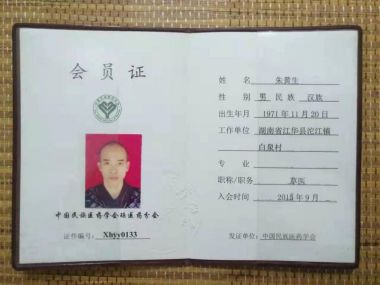 会员证
中国民族医药学会瑶医药分会
证件编号: Xhyy0133
姓名 朱黄生
性别 男 民族 汉族
出生年月 1971年11月20日
工作单位 湖南省江华县沱江镇
白泉村
专业
职称/职务 草医
入会时间 2015年9月
发证单位: 中国民族医药学会